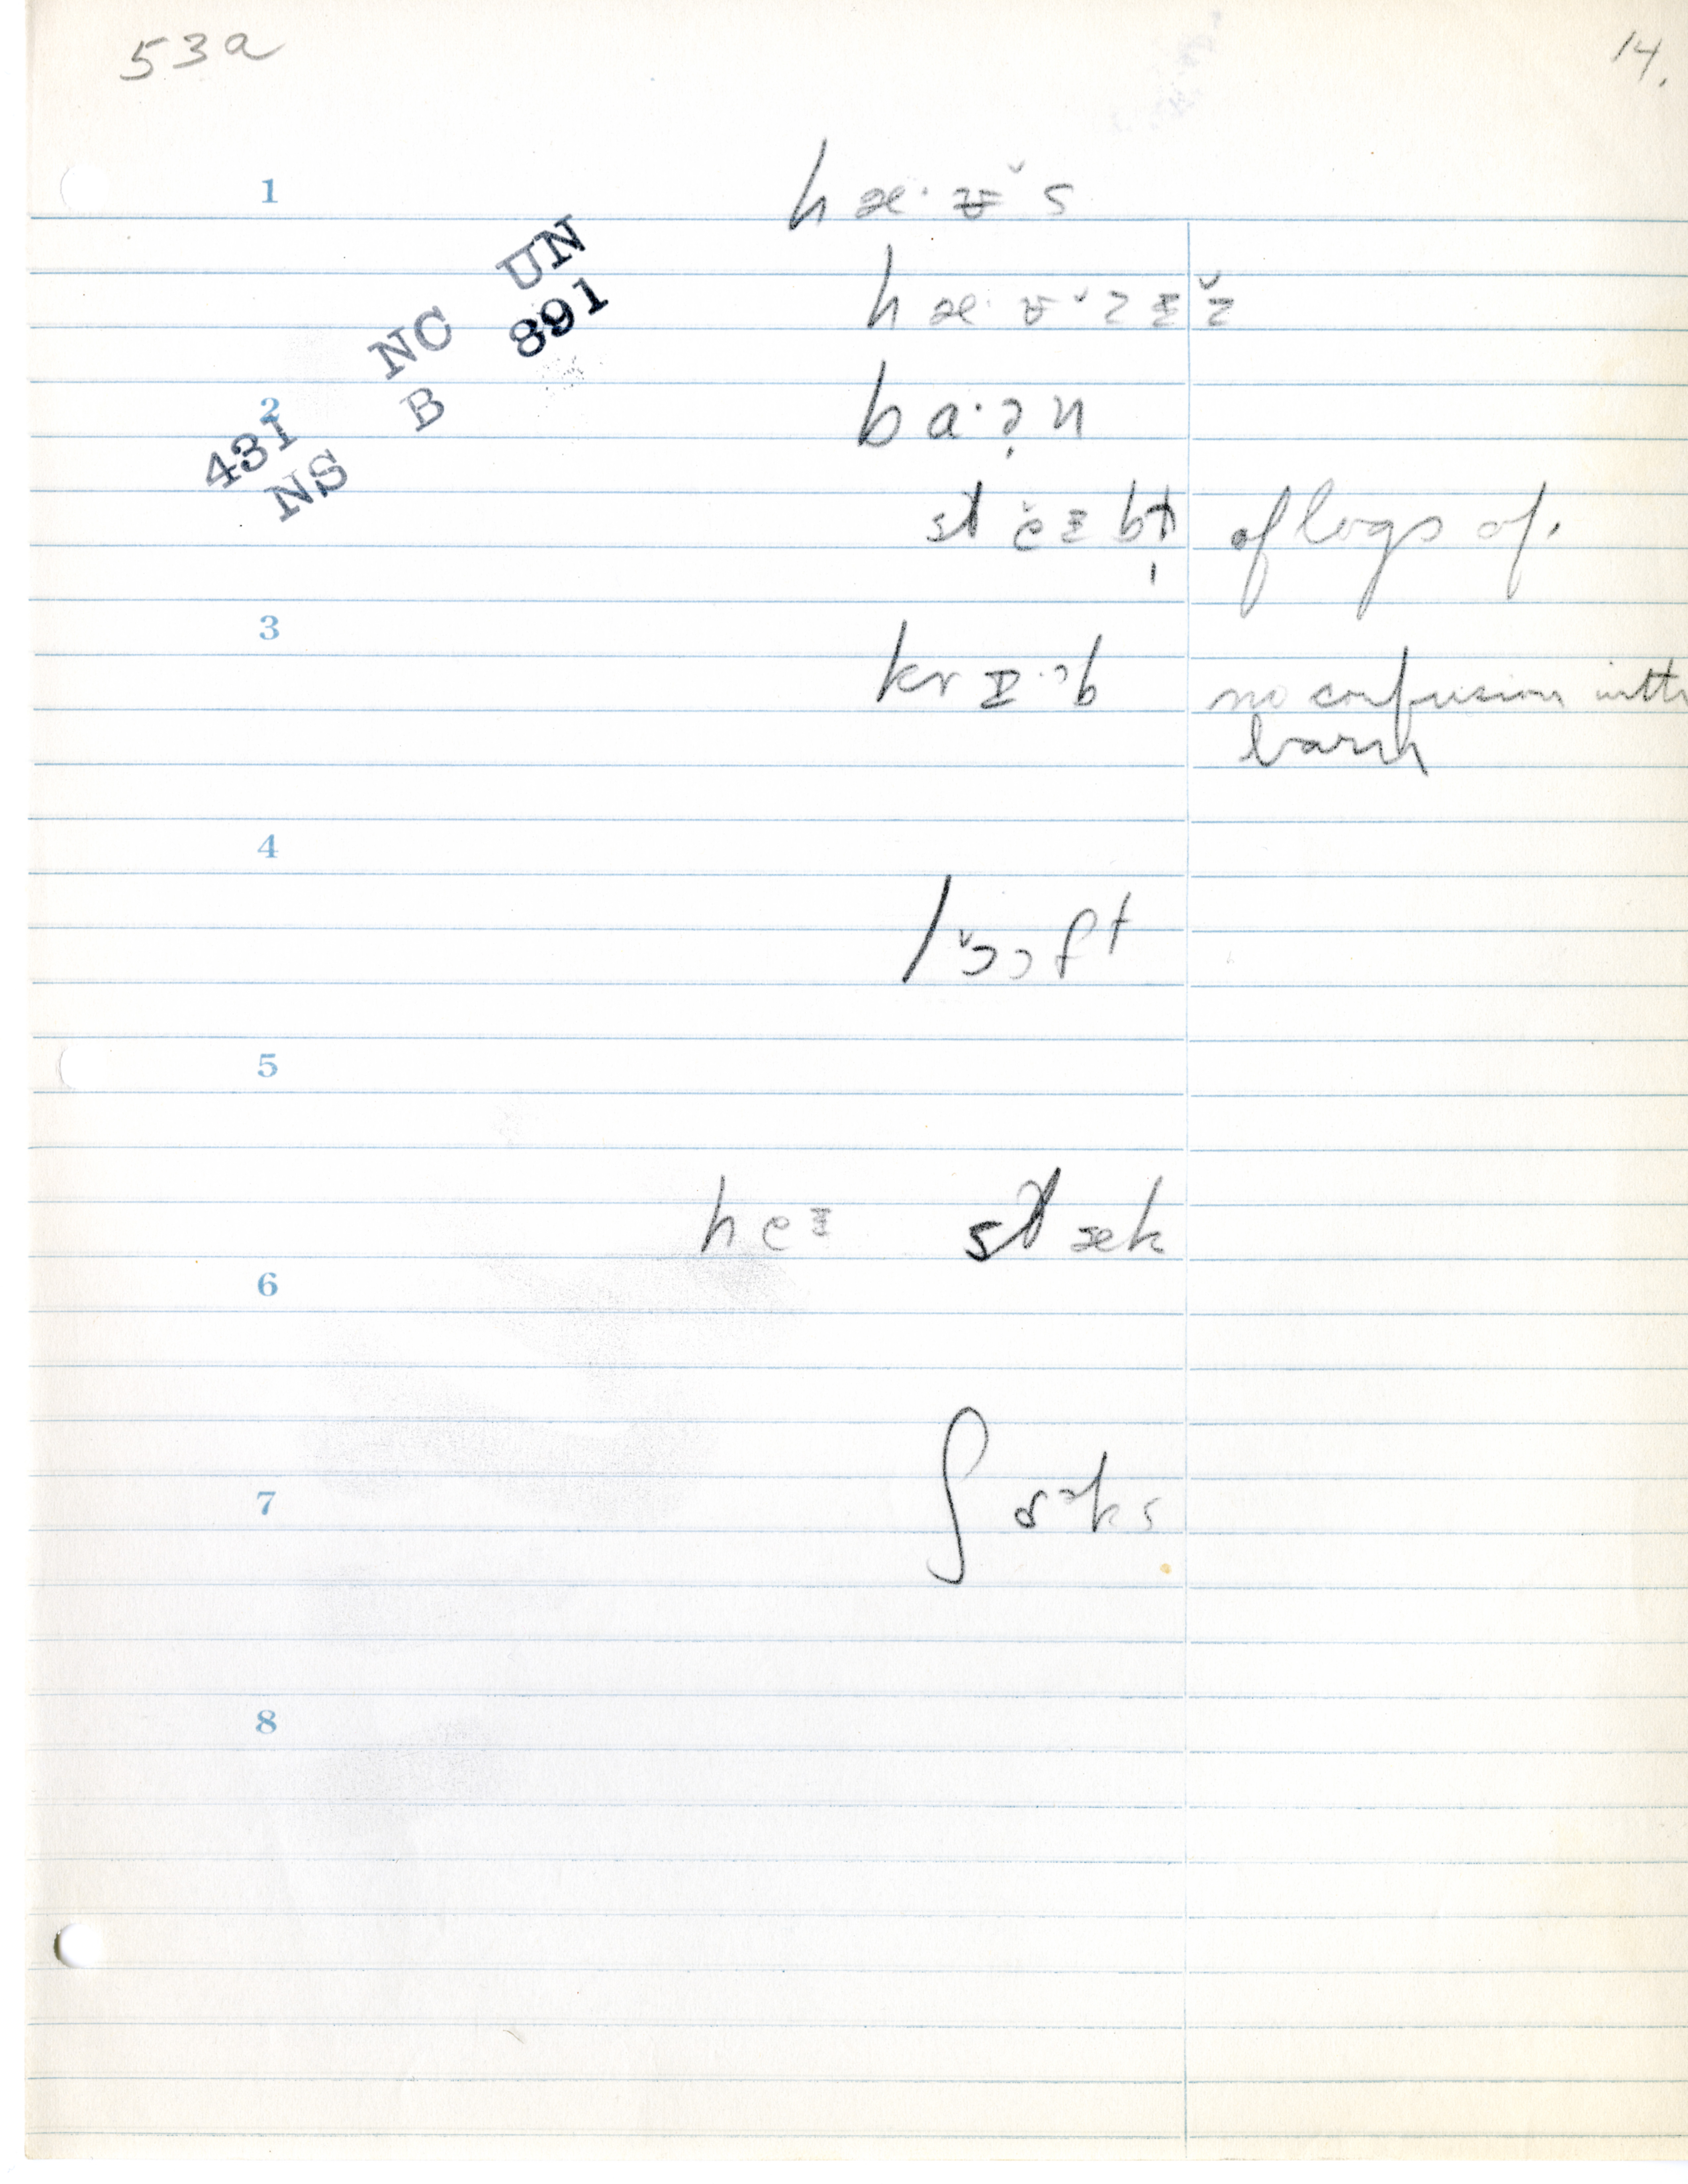 53a
14.
1
hæ·ᵿ̆s
UN
hæ·ᵿ̆zɪ̵z̆
NC 891
2 B
ba·ə̣n
431
NS
of logs of.
3
krɪ·ᵊb no confusion with
barn
4
lɔ̆ɔft
5
heɪ̵ stæk
6
7
ʃɒᵊks
8